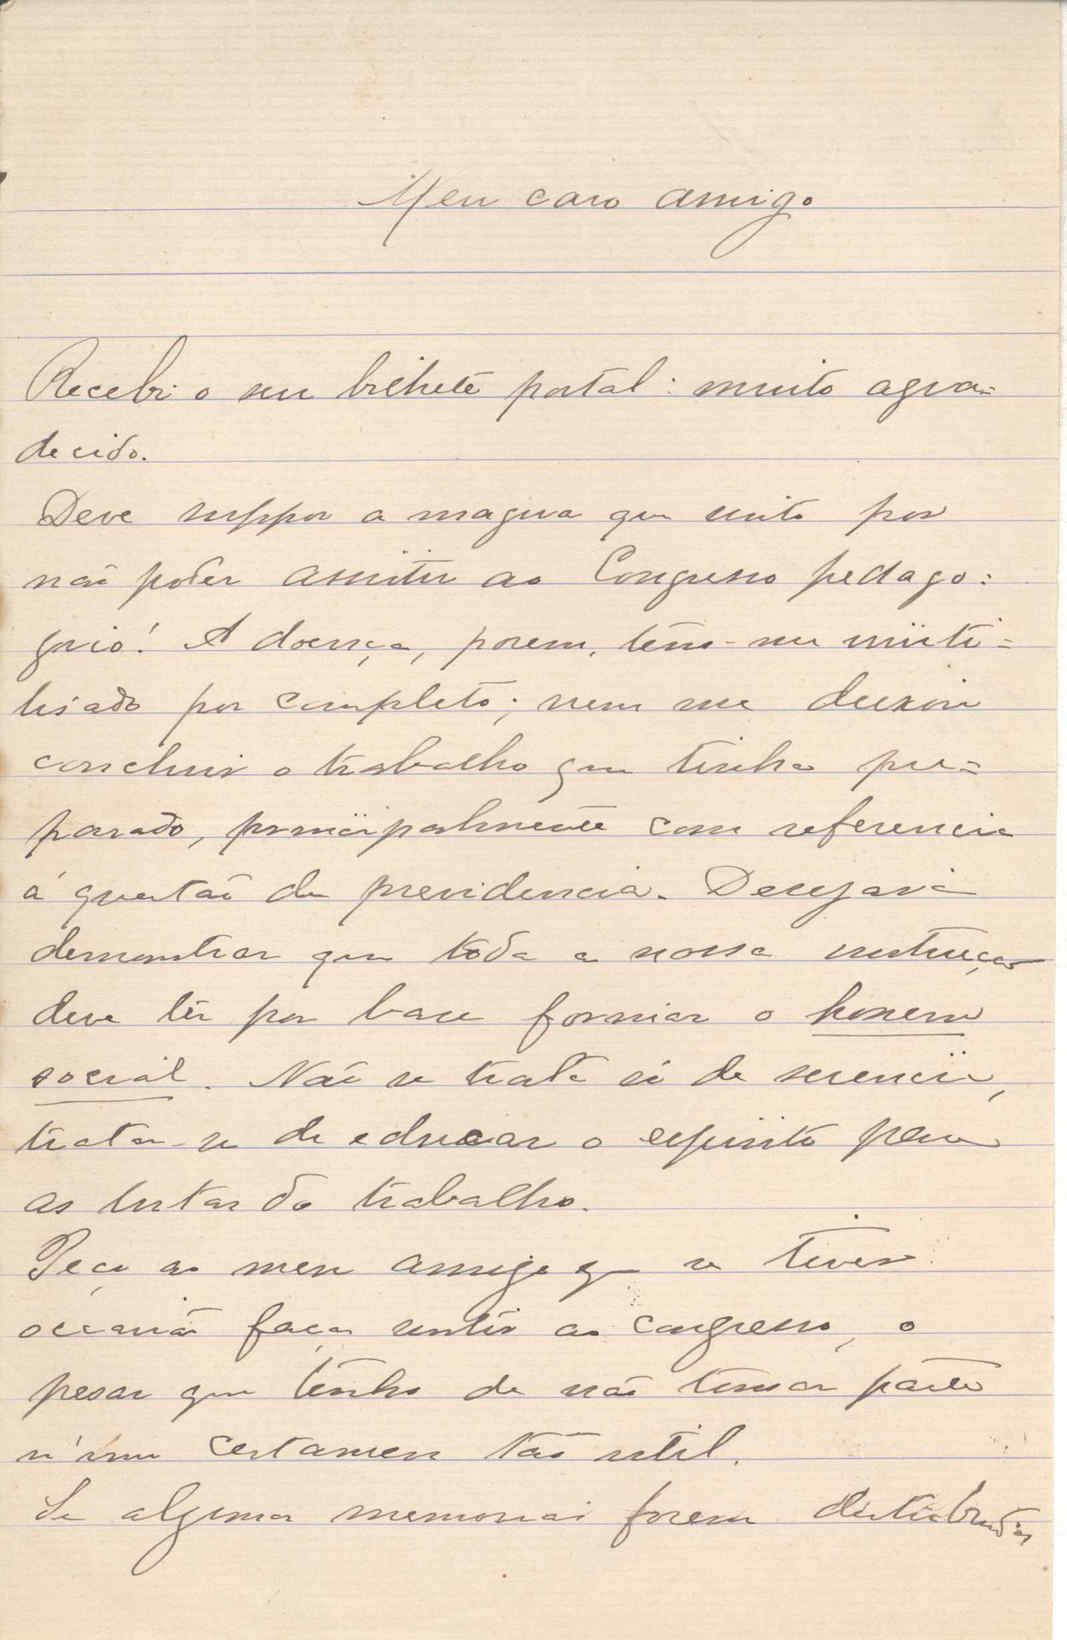 Meu caro amigo
Recebi o seu bilhete postal: muito agra=
decido.
Deve suppor a magua que sinto por
não poder assistir ao Congresso pedago=
gico! A doença, porem, tem-me inuti=
lisado por completo; nem me deixou
concluir o trabalho que tinha pre=
parado, principalmente com referencia
á questão da previdencia. Desejava
demonstrar que toda a nossa instrucção
deve têr por base formar o homem
social. Não se trata só de sciencia,
trata-se de educar o espirito para
as lutas do trabalho.
Peço ao meu amigo que se tiver
occasião faça sentir ao congresso, o
pesar que tenho de não tomar parte
n'um certamen tão util.
Se algumas memorias forem distribuidas